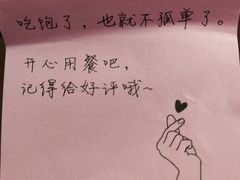 吃饱了，也就不孤单了。
开心用餐吧，
记得给好评哦~